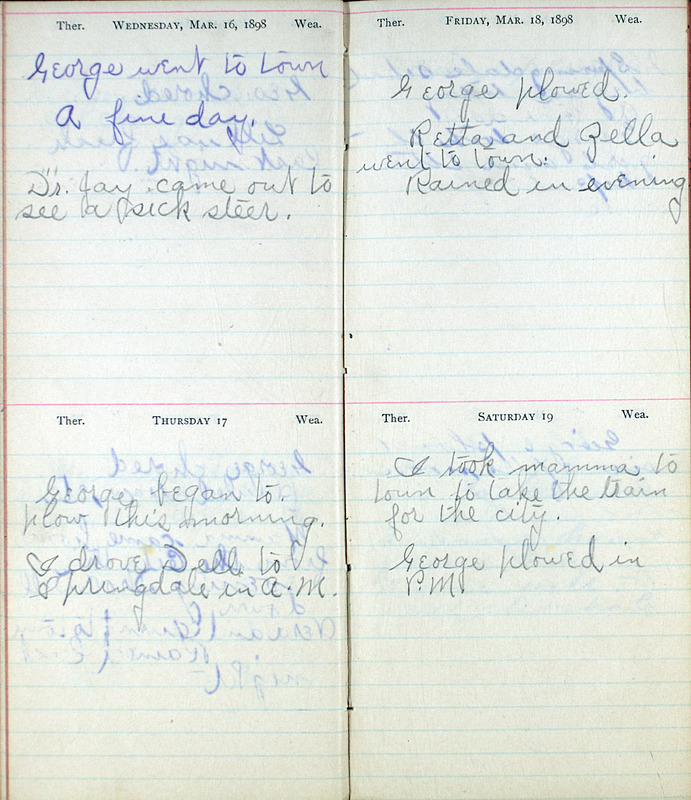 Ther. WEDNESDAY, MAR. 16, 1898 Wea.
George went to town
A fine day.
Dr. Jay came out to
see a sick steer.
Ther. THURSDAY 17 Wea.
George began to
plow this morning.
I drove Dell to
Springdale in A.M.
Ther. FRIDAY, MAR. 18, 1898 Wea.
George plowed.
Retta and Zella
went to town.
Rained in evening
Ther. SATURDAY 19 Wea.
I took mamma to
town to take the train
for the city.
George plowed in
P.M.